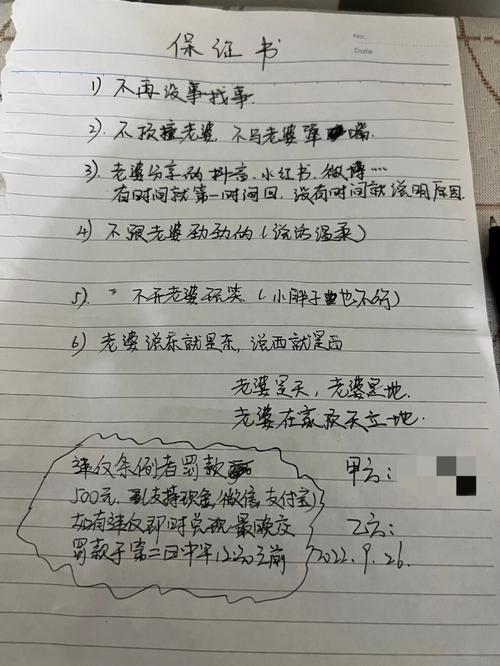 No.
Date
保证书
1) 不再没事找事.
2). 不顶撞老婆, 不与老婆犟嘴.
3). 老婆分享的抖音、小红书、微博…
有时间就第一时间回, 没有时间就说明原因.
4) 不跟老婆劲劲的(说话温柔)
5). 不开老婆玩笑.(小胖子也不行)
6) 老婆说东就是东, 说西就是西
老婆是天, 老婆是地.
老婆在家顶天立地.
违反条例者罚款
500元, 支持现金,微信,支付宝
如有违反即时兑现.最晚交
罚款于第二日中午12:00之前
甲方:
乙方:
2022.9.26.